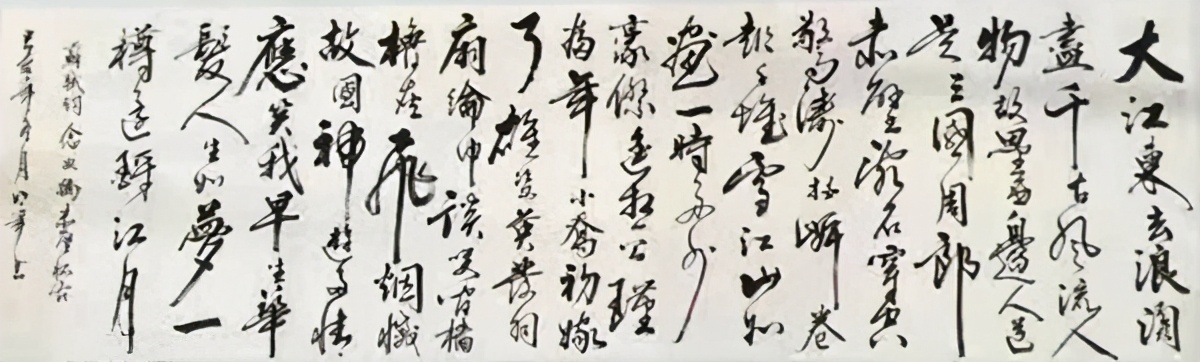 大江東去浪淘
盡千古風流人
物故壘西邊人道
是三國周郎
赤壁亂石穿空
驚濤拍岸卷
起千堆雪江山如
畫一時多少
豪傑遥想公瑾
當年小喬初嫁
了雄姿英發羽
扇綸巾談笑間檣
櫓灰飛烟滅
故國神遊多情
應笑我早生華
髮人生如夢一
樽還酹江月
蘇軾詞念奴嬌赤壁懷古